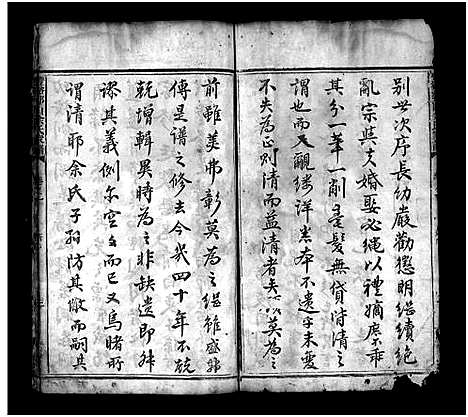 别世次序長幼嚴勸懲明繼續絶
亂宗與夫婚娶必繩以禮嫡庶不乖
其分一筆一削毫髮無貸皆清之
謂也而又覼縷詳悉本不遺字未變
不失為正則清而益清者矣 莫為之
前雖美弗彰莫為之繼雖盛弗
傳是譜之修去今幾四十年不
乾增輯異時為之非缺遺即舛
謬其義例亦空文而已又烏睹所
謂清耶余氏子孫防其敝而嗣其